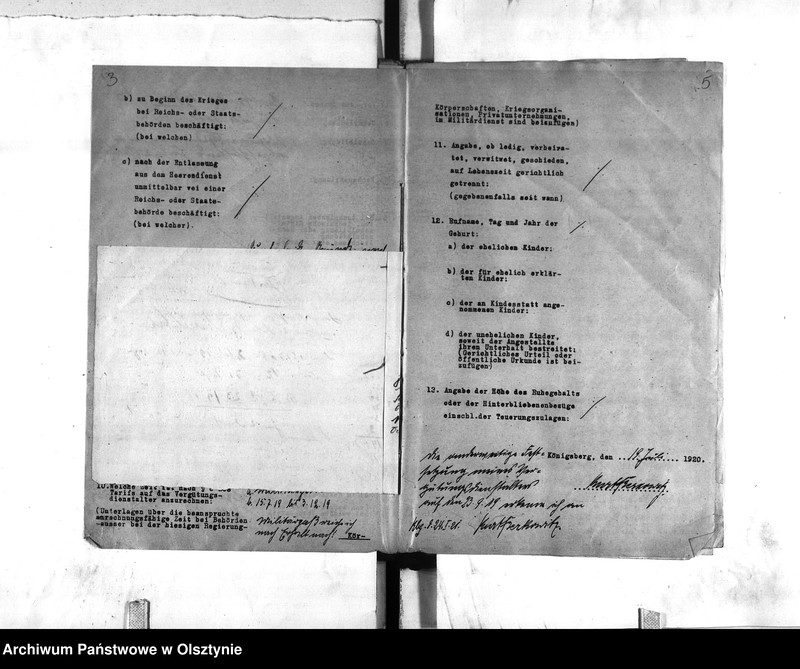 3
b) zu Beginn des Krieges
bei Reichs- oder Staats-
behörden beschäftigt:
(bei welchen)
c) nach der Entlassung
aus dem Heeresdienst
unmittelbar vei einer
Reichs- oder Staats-
behörde beschäftigt:
(bei welcher).
Tarifs auf das Vergütungs-
dienstalter anzurechnen:
b. 15.7.19 bis 3.12.19
(Unterlagen über die beanspruchte
anrechnungsfähige Zeit bei Behörden
-ausser bei der hiesigen Regierung-
Militärpaß reiche ich
nach Erhalt nach!
Kör-
5
Körperschaften, Kriegsorgani-
sationen, Privatunternehmungen,
im Militärdienst sind beizufügen)
11. Angabe, ob ledig, verheira-
tet, verwitwet, geschieden,
auf Lebenszeit gerichtlich
getrennt:
(gegebenenfalls seit wann)
12. Rufname, Tag und Jahr der
Geburt:
a) der ehelichen Kinder:
b) der für ehelich erklär-
ten Kinder:
c) der an Kindesstatt ange-
nommenen Kinder:
d) der unehelichen Kinder,
soweit der Angestellte
ihren Unterhalt bestreitet:
(Gerichtliches Urteil oder
öffentliche Urkunde ist bei-
zufügen)
13. Angabe der Höhe des Ruhegehalts
oder der Hinterbliebenenbezüge
einschl.der Teuerungszulagen:
Königsberg, den 18. Juli 1920.
Die anderweitige Fest-
setzung meines Ver-
gütungsdienstalters
auf den 23.9.19 erkenne ich an
Archiwum Państwowe w Olsztynie